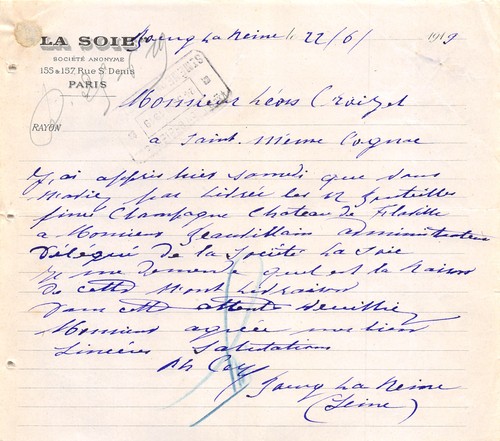 LA SOIE
SOCIÉTÉ ANONYME
155 & 157, Rue St Denis
PARIS
RAYON
Bourg La Reine le 22/6/ 1919
Monsieur Léon Croizet
a Saint Meme Cognac
J'ai appris hier samedi que vous
n'aviez pas Livrée les 12 Bouteilles
fine Champagne Chateau de Flaville
a Monsieur administrateur
Délégué de la Société La Soie
Je me demande quel est la Raison
de cette Livraison
Dans cette attente Veuillez
Monsieur agrée mes bien
Sincères Salutations
Bourg La Reine
(Seine)